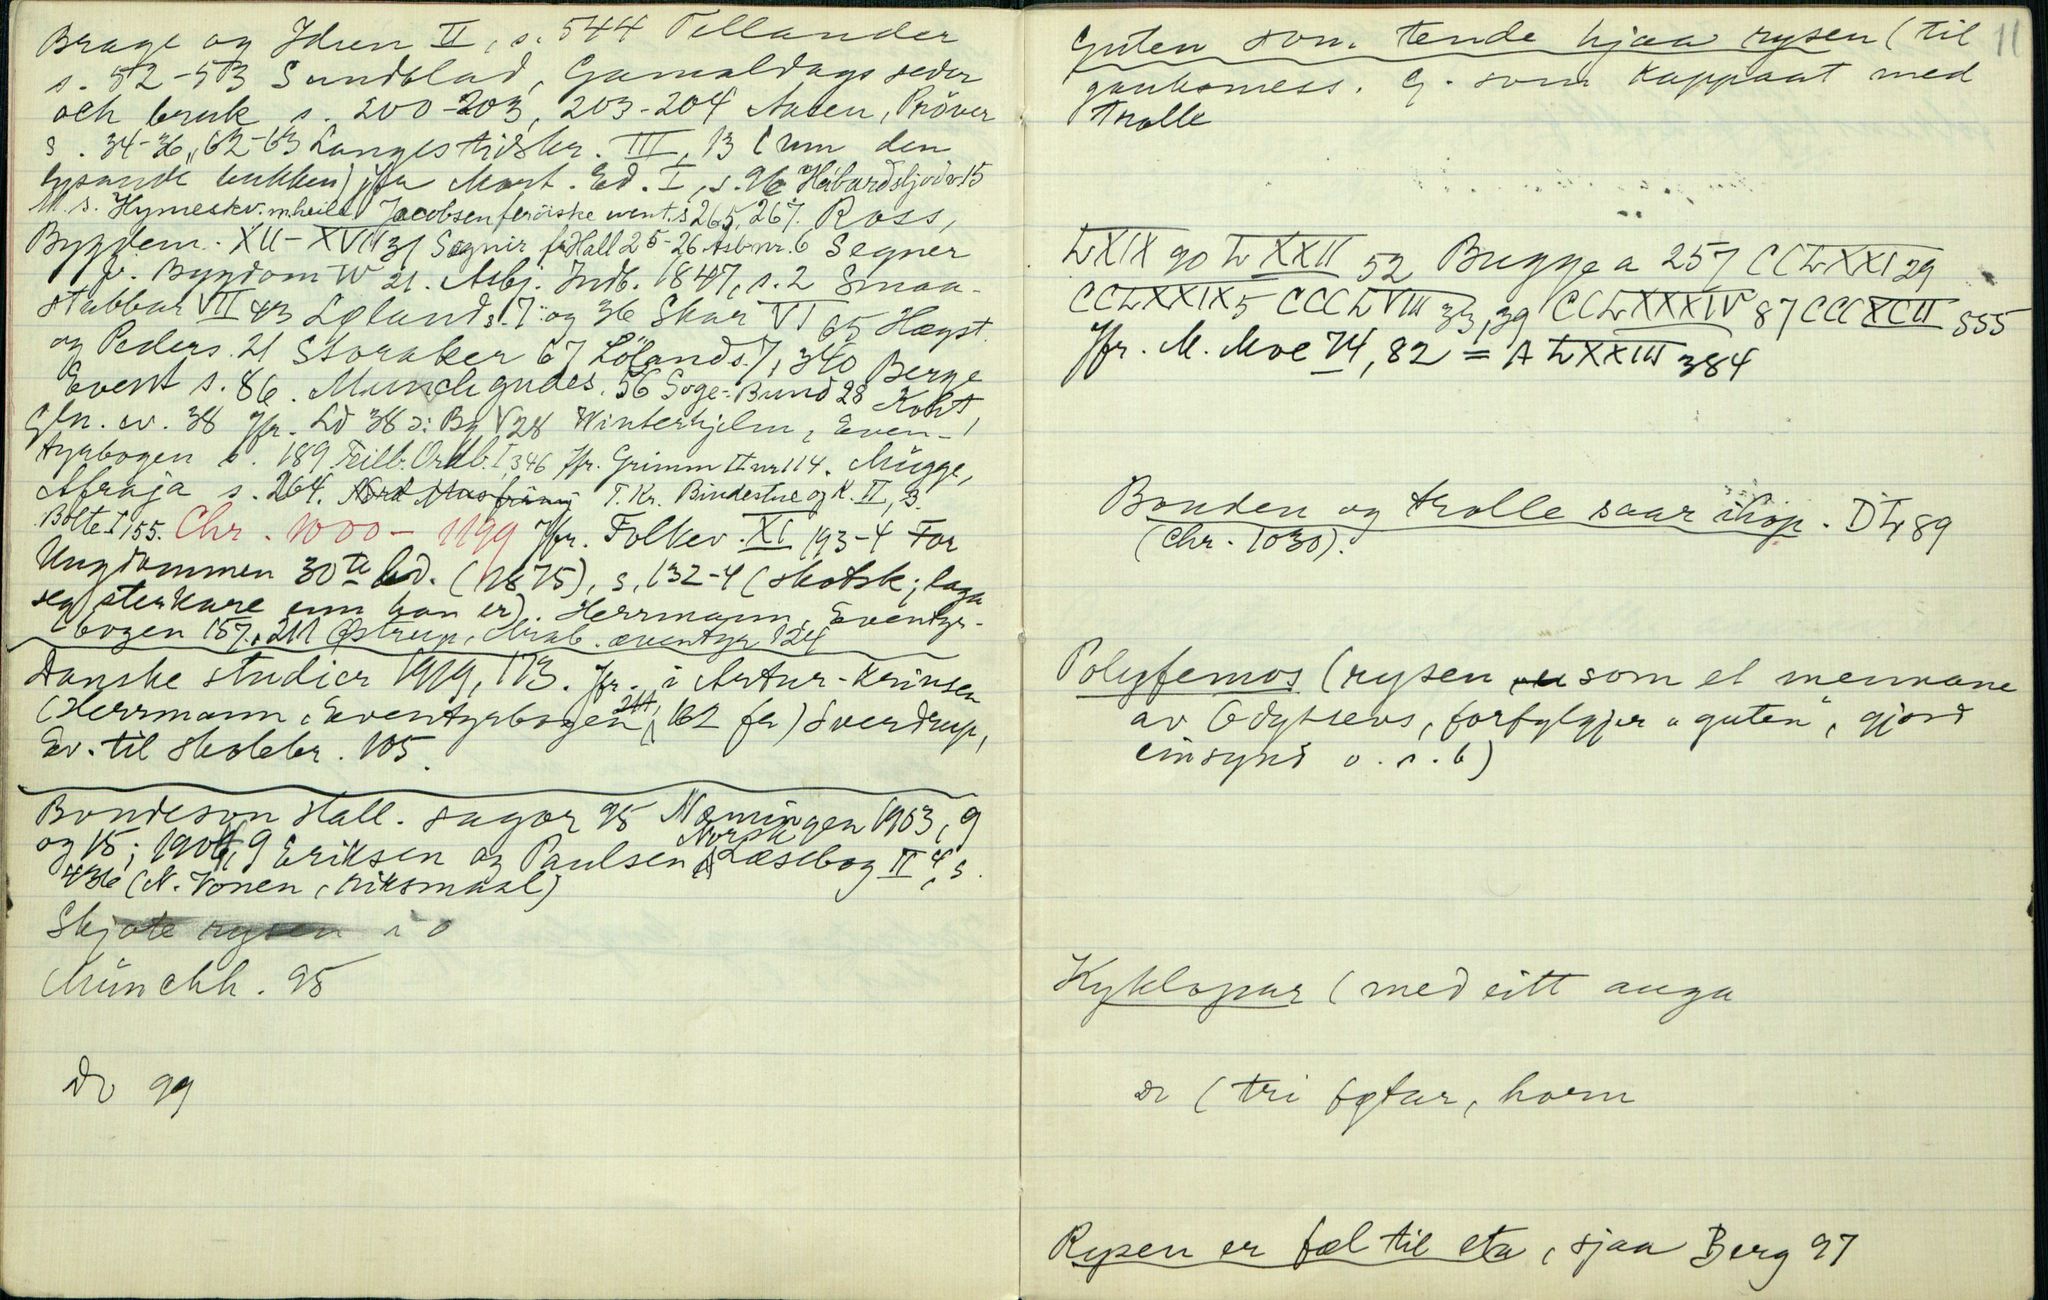 Brage og Idun II, s. 544 Tellander
s. 52-53 Sundblad, Gamaldags seder
och bruk s. 200-203, 203-204 Aasen, Prøver
s. 34-36, 62-63 Langes tidskr. III, 13 (um den
lysande bukken) jfr Mart. Ed. I, s. 96 Hábardsljod v 15
M. s. Hymeskv. m. heile Jacobsen ferøiske event. s 265, 267. Ross,
Bygdem. XII-XVII 31 Segnir fr Hall 25-26 Asb nr. 6 Segner
fr. Bygdom IV 21. Asbj. Indb. 1847, s. 2 Smaa-
stubbar VII 43 Løland s. 7 og 36 Skar VI 65 Hægst.
og Peders. 21 Storaker 67 Løland s. 7, 340 Berge
Event s. 86. Munch gudes. 56 Soge-Bund 28 Koht,
Gln. sv. 38 Jfr. Ld 38 s: Bg V 28 Winterhjelm, Even-
tyrbogen s. 189 Feilb. Ordb. I, 346 Jfr. Grimm II nr 114. Mügge,
Afraja s. 264. T. Kr. Bindestue og K. II, 3.
Bolte I 155. Chr. 1000-1199 Jfr. Folkev. XI 193-4 For
Ungdommen 30te bd. (1875), s. 132-4 (skotsk; laga
seg sterkare enn han er). Herrmann, Eventyr-
bogen 157, 211 Østrup, Arab. æventyr 124
Danske studier 1919, 173. Jfr. i Artur-Krinsen
(Herrmann, Eventyrbogen 211, 162 fr) Sverdrup,
Ev. til skolebr. 105.
Bondeson Hall. sagor 95 Norningen 1903, 9
og 15; 1906, 9 Eriksen og Paulsen Norsk Læsebog II 4, s.
436 (N. Vonen, riksmaal)
Skjote rysen i o
Münchh. 95
Do 99
11
Guten som tende hjaa rysen (til
gaukomess. G. som kappaat med
Trolle
LXIX 90 LXXII 52 Bugge a 257 CCLXXI 29
CCLXXIX 5 CCCLVIII 33, 39 CCLXXXIV 87 CCCXCII 555
Jfr. M. Moe 74, 82 = A LXXIII 384
Bonden og trolle saar ihop. DL 89
(Chr. 1030).
Polyfemos (rysen som et mennane
av Odyssevs, forfylgjer "guten", gjord
einsynd o. s. b)
Kyklopar (med eitt auga
Do (tri føtar, horn
Rysen er fæl til eta, sjaa Berg 97